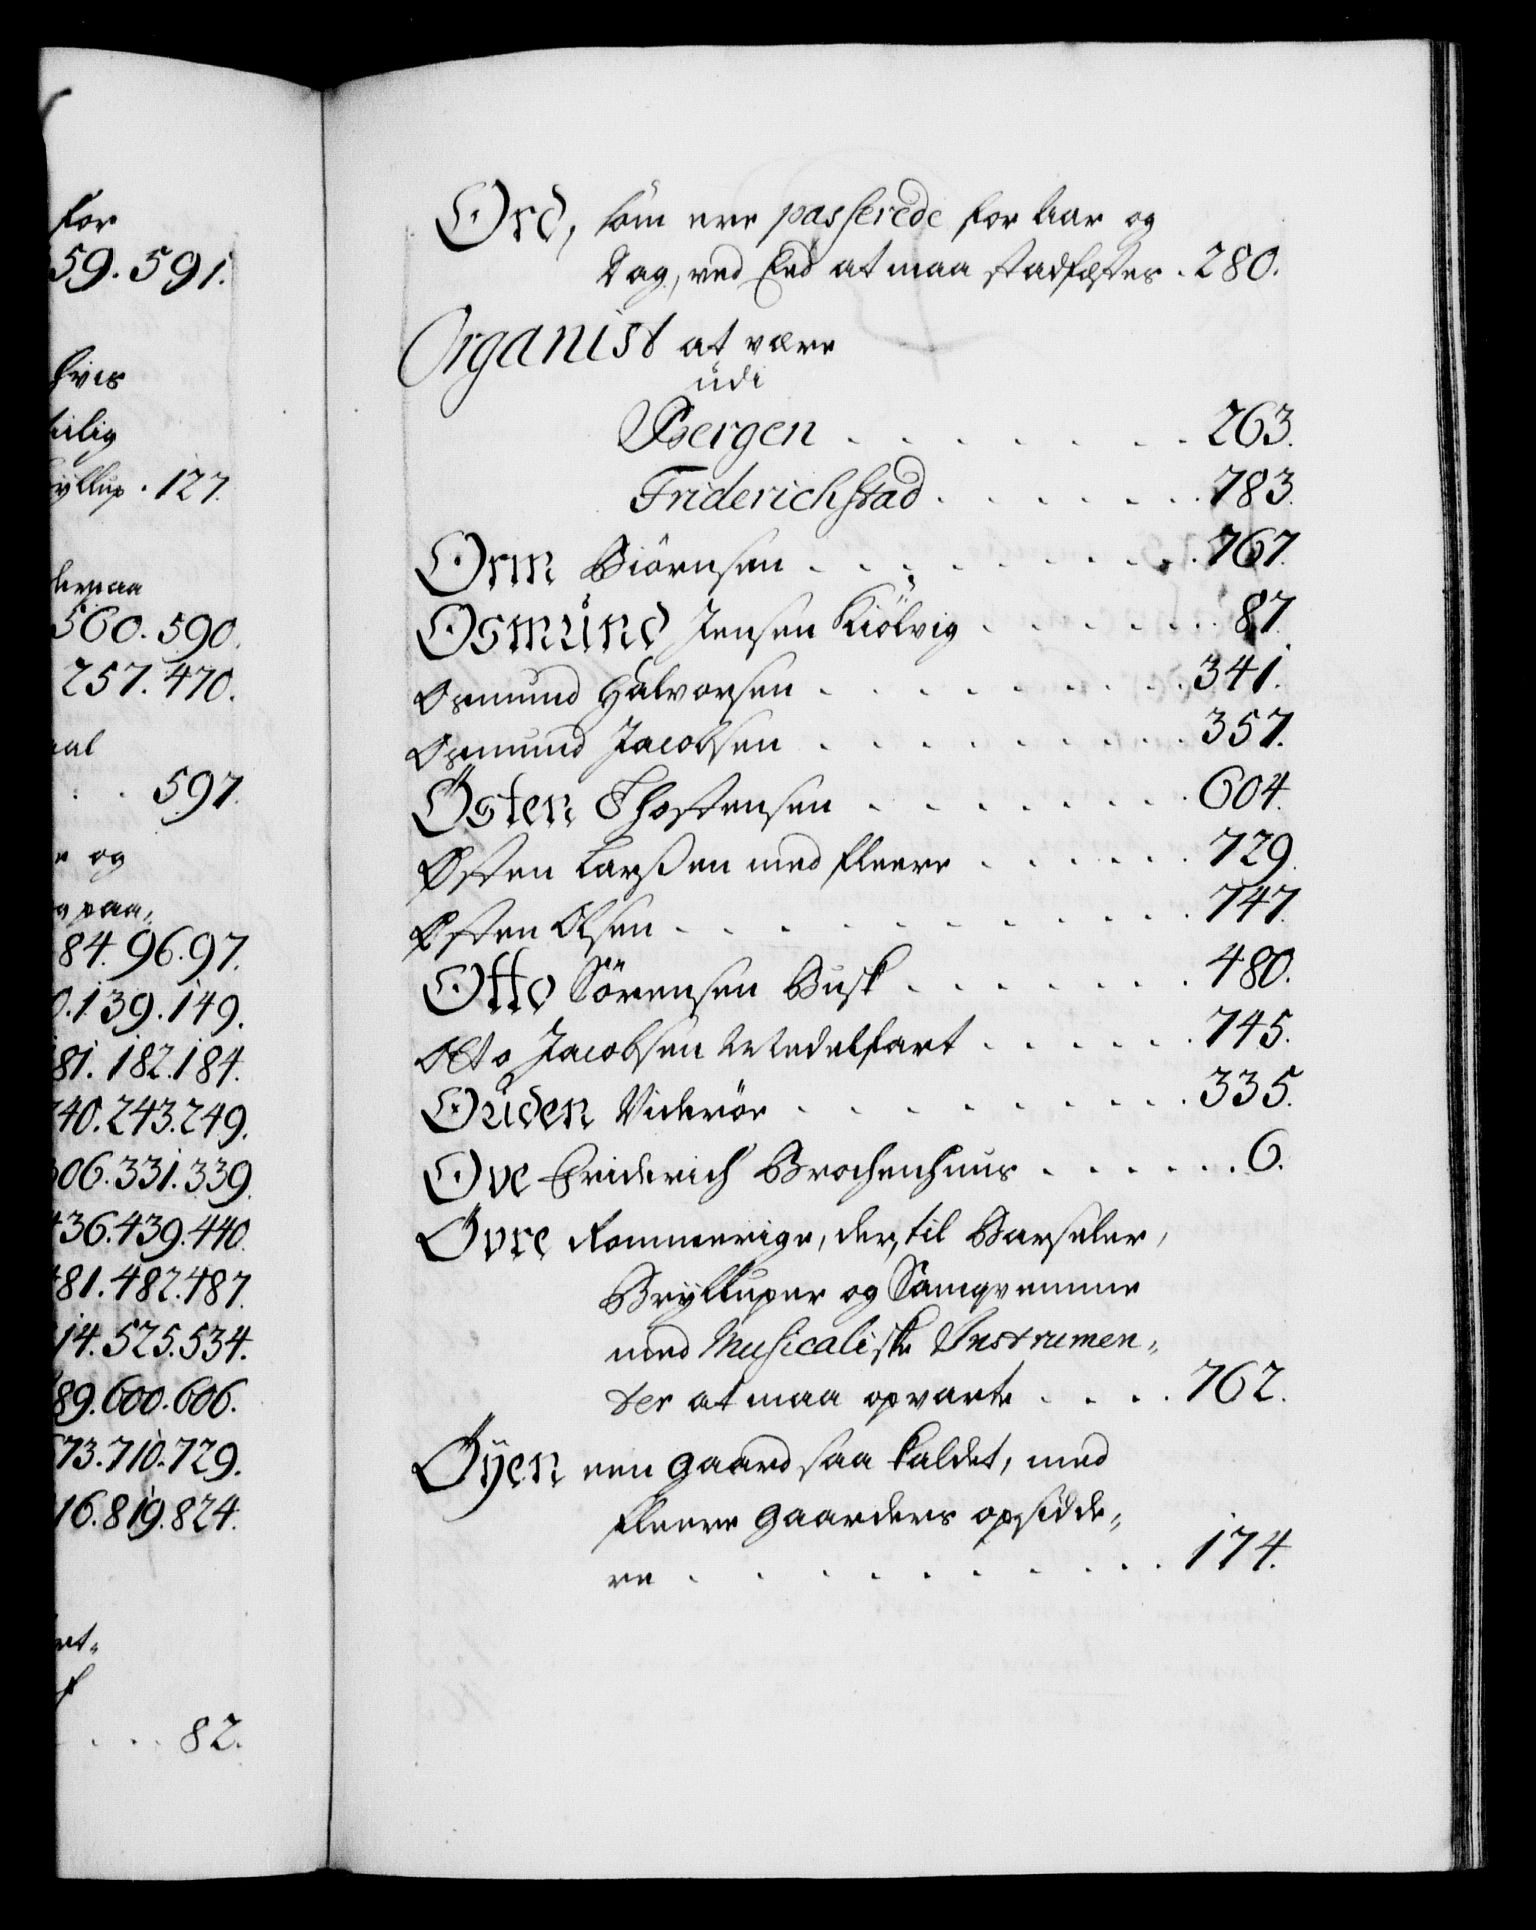 for
59. 591.
hvis
lilig
yllup . 127.
derpaa
560. 590.
257. 470.
aal
. . 597.
e og
g paa,
84. 96. 97.
0. 139. 149.
81. 182. 184.
240. 243. 249.
306. 331. 339.
436. 439. 440.
481. 482. 487.
14. 525. 534.
89. 600. 606.
673. 710. 729.
16. 819. 824.
et„
. . . 82.
Ord, som ere passerede for Aar og
Dag, ved Eed at maa stadfæstes . 280.
Organist at være
udi
Bergen . . . . . . . 263.
Friderichstad . . . . . . 783.
Orm Biörnsen . . . . . . . . 767.
Osmund Jensen Kiölvig . . . . . . 87.
Osmund Halvorsen . . . . . . . . 341.
Osmund Jacobsen . . . . . . . . 357.
Östen Thostensen . . . . . . . 604.
Østen Larssen med fleere . . . . . 729.
Østen Olsen . . . . . . . . . . 747.
Otto Sörensen Busk . . . . . . 480.
Otto Jacobsen Medelfart . . . . . 745.
Ouden Viderör . . . . . . . . 335.
Ove Friderich Brochenhuus . . . . . . 6.
Övre Rommerige, der, til Barseler,
Brylluper og Samqvemme
med Musicaliske Instrumen„
ter at maa opvarte . . . . 762.
Öyen een gaard saa kaldet, med
fleere gaarders opsidde„
re . . . . . . . . . 174.